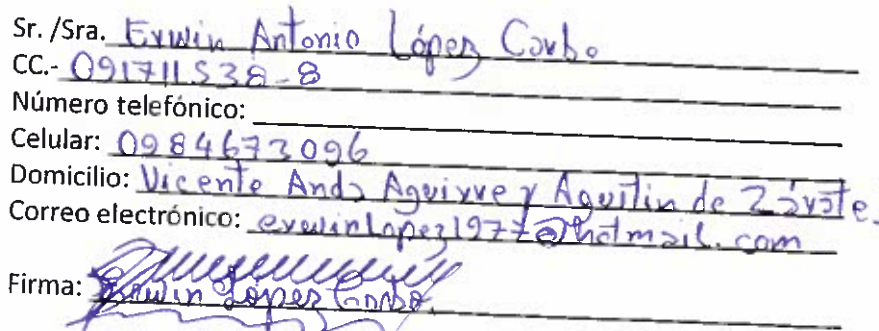 Sr. /Sra. Erwin Antonio López Carbo
CC.- 091711538-8
Número telefónico:
Celular: 0984673096
Domicilio: Vicente Anda Aguirre y Agustin de Zárate.
Correo electrónico: erwinlopez1977@hotmail.com
Firma: Erwin López Carbo